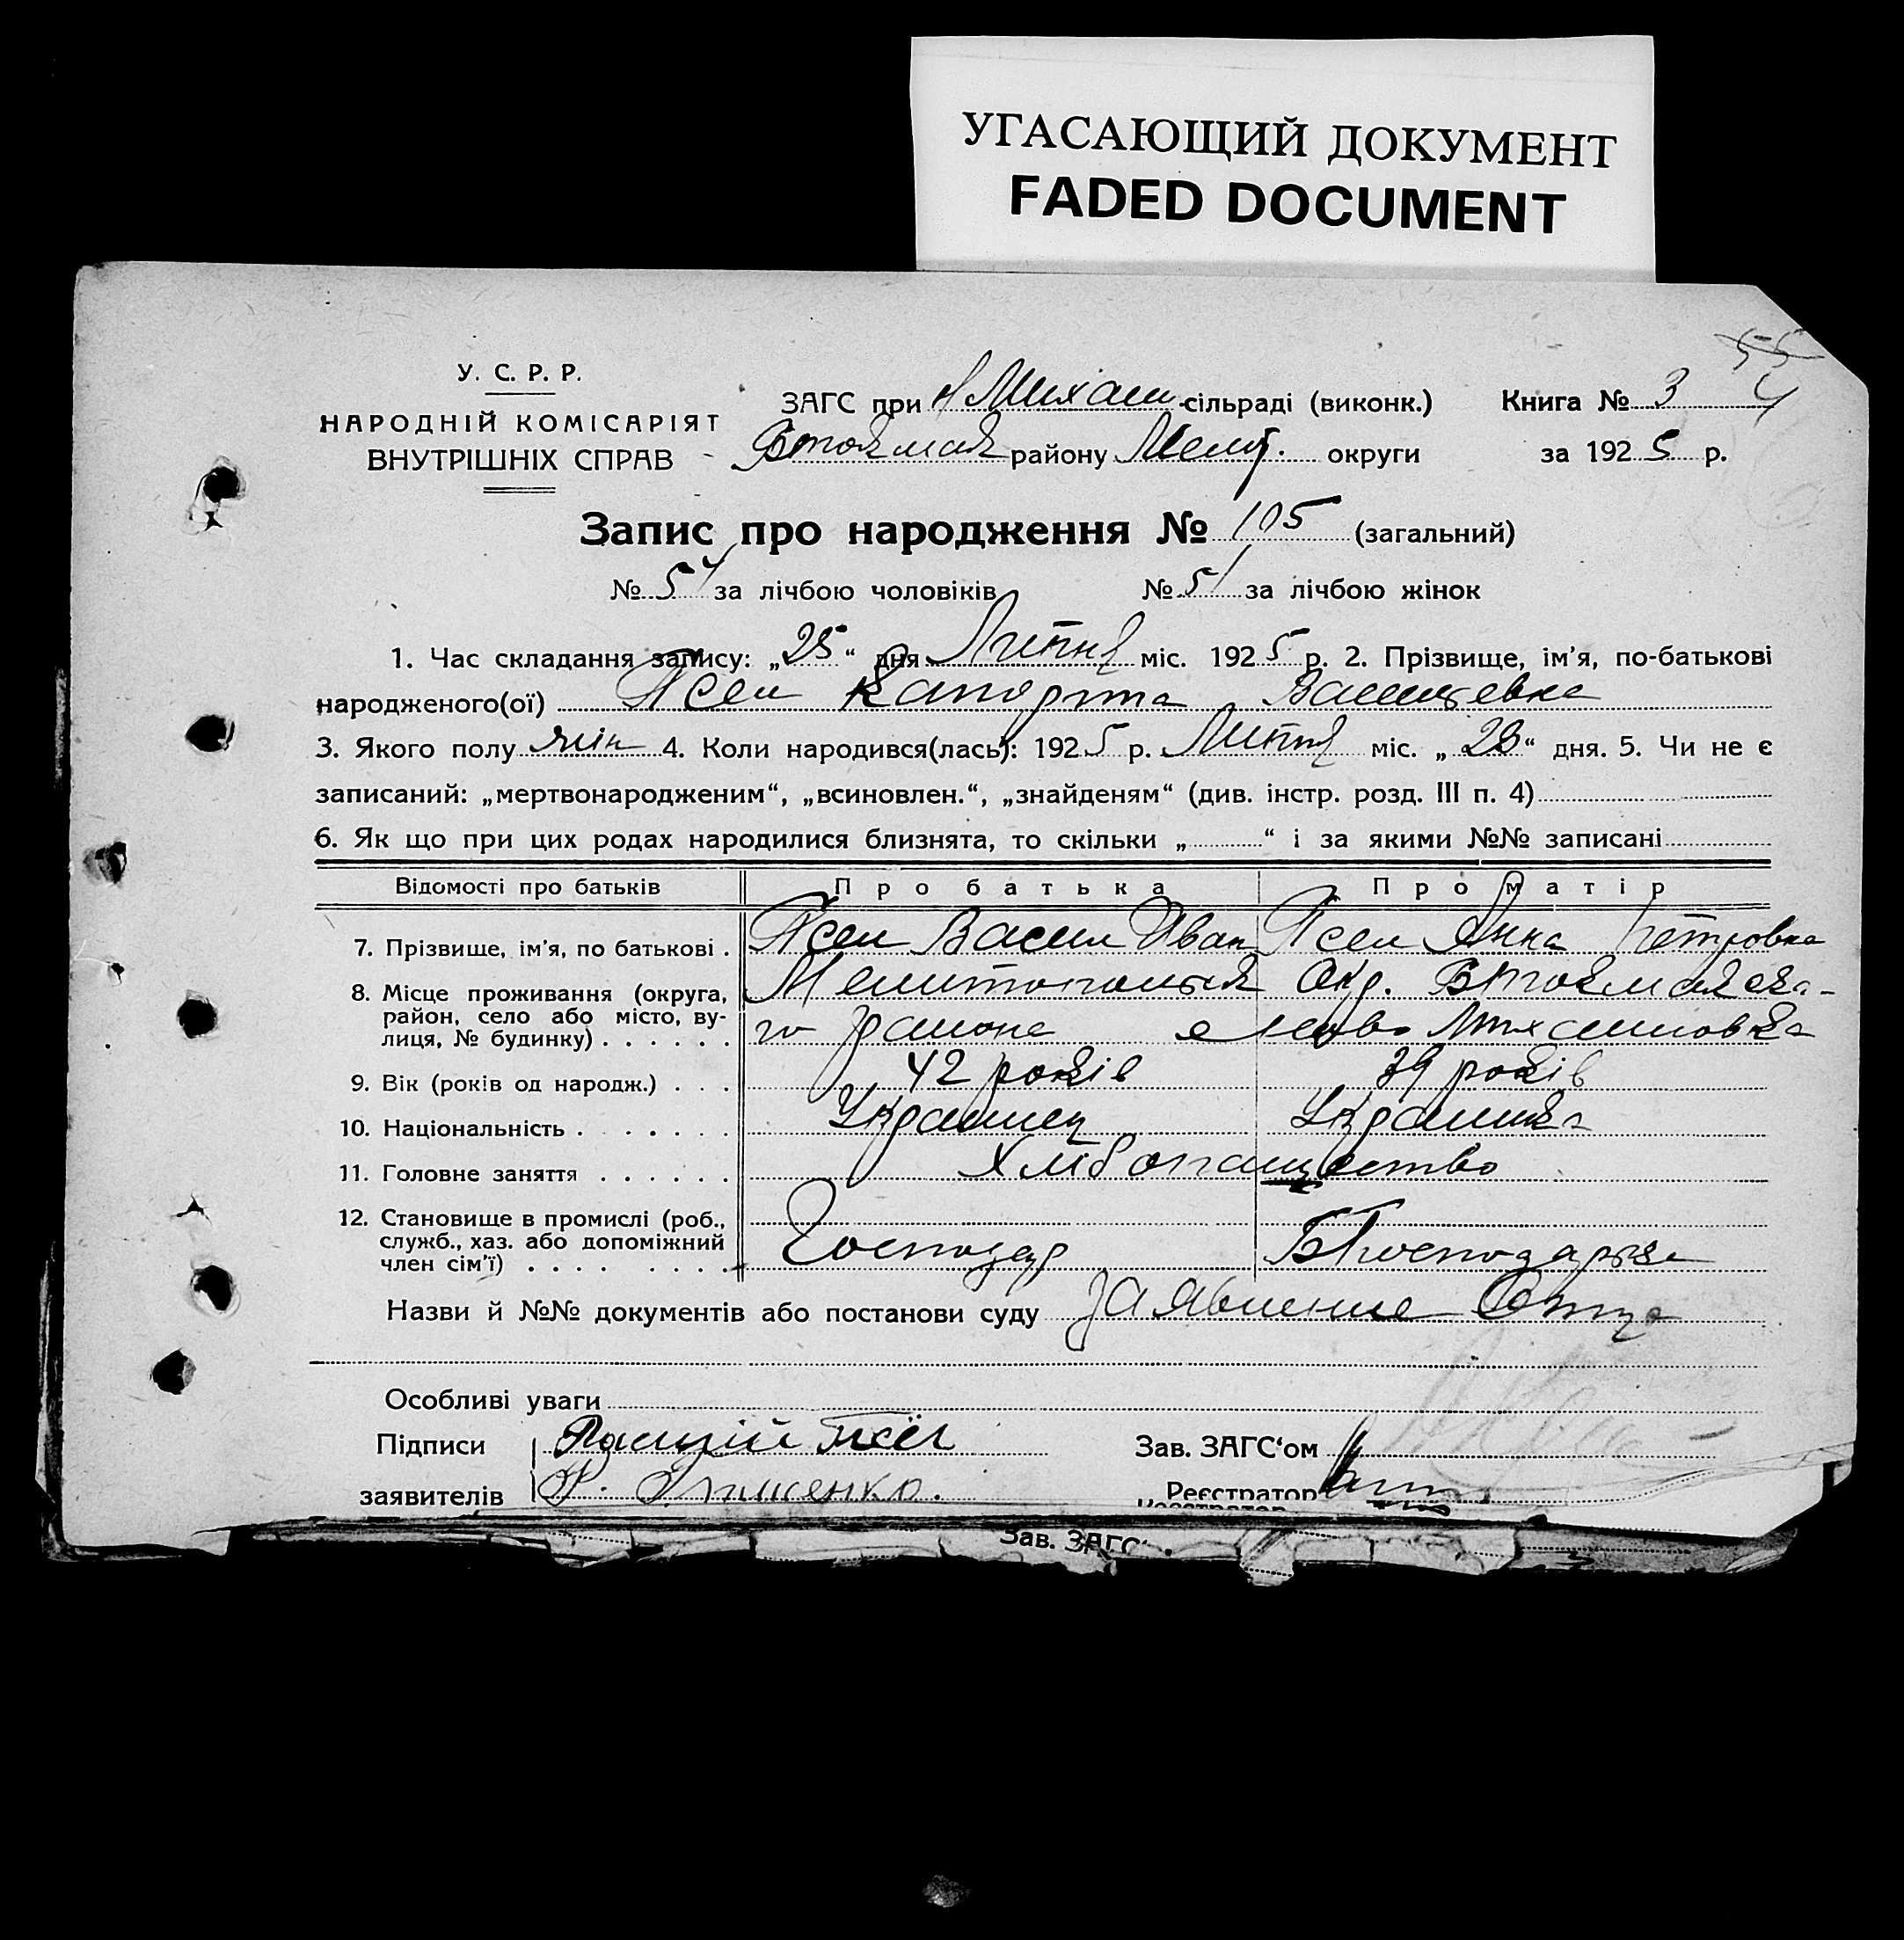 УГАСАЮЩИЙ ДОКУМЕНТ
FADED DOCUMENT
У. С. Р. Р.
НАРОДНІЙ КОМІСАРІЯТ
ВНУТРІШНІХ СПРАВ
ЗАГС при Н Михайл сільраді (виконк.) Книга № 3
району Меліт. округи за 1925 р.
Запис про народження № 105 (загальний)
№ 54 за лічбою чоловіків № 51 за лічбою жінок
1. Час складання запису: „25“ дня Липня міс. 1925 р. 2. Прізвище, ім'я, по-батькові
народженого(ої) Псел Васильевна
3. Якого полу жін 4. Коли народився(лась): 1925 р. Липня міс. „23“ дня. 5. Чи не є
записаний: „мертвонародженим“, „всиновлен.“, „знайденям“ (див. інстр. розд. III п. 4)
6. Як що при цих родах народилися близнята, то скільки „ “ і за якими №№ записані
Відомості про батьків Про батька Про матір
7. Прізвище, ім'я, по батькові . Псел Васил Иван Псел Анна Петровна
8. Місце проживання (округа, Мелитопольск Окр.
район, село або місто, ву-
лиця, № будинку) . . . . . . го района с Ново Михайловка
9. Вік (років од народж.) . . . 42 років 39 років
10. Національність . . . . . . Украинец Украинка
11. Головне заняття . . . . . . Хлібопашество
12. Становище в промислі (роб.,
служб., хаз. або допоміжний
член сім'ї) . . . . . . . . Господар Господарька
Назви й №№ документів або постанови суду заявление Отца
Особливі уваги
Підписи Псёл Зав. ЗАГС‘ом
заявителів Реєстратор
Реєстратор
Зав. ЗАГС